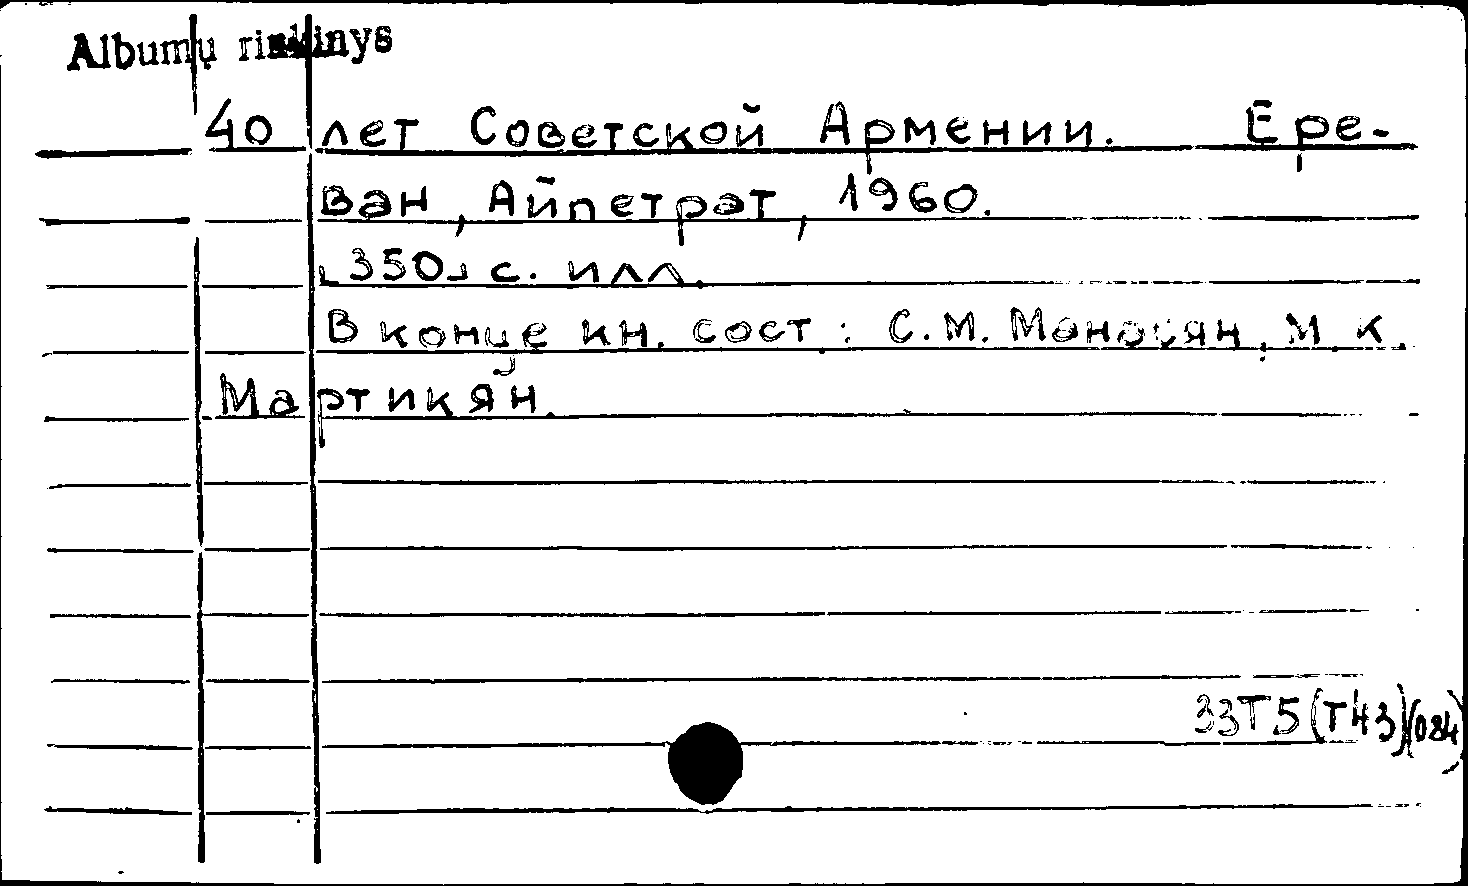 Albumų rinkinys
40 лет Советской Армении. Ере-
ван, Айпетрат, 1960.
⌞350⌟ с. илл.
В конце кн. сост: С. М. Манасян, М. К.
Мартикян.
33Т5(Т43)(084)